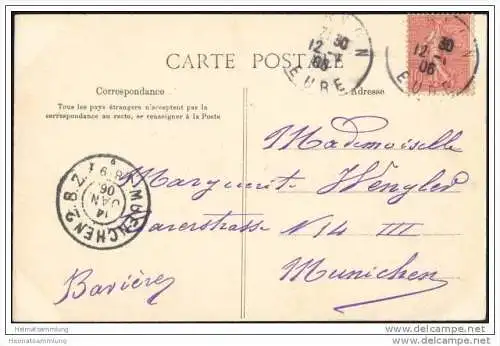 CARTE POSTALE
Correspondance
Adresse
Tous les pays étrangers n'acceptent pas la
correspondance au recto, se renseigner à la Poste
30
12 -1
06
EURE
30
12 -1
06
Mademoiselle
Marguerite Wengler
N 14 III
Munichen
Bavière
MUENCHEN 2 B.Z.
14
JAN
06
Heimatsammlung
Heimatsammlung.de